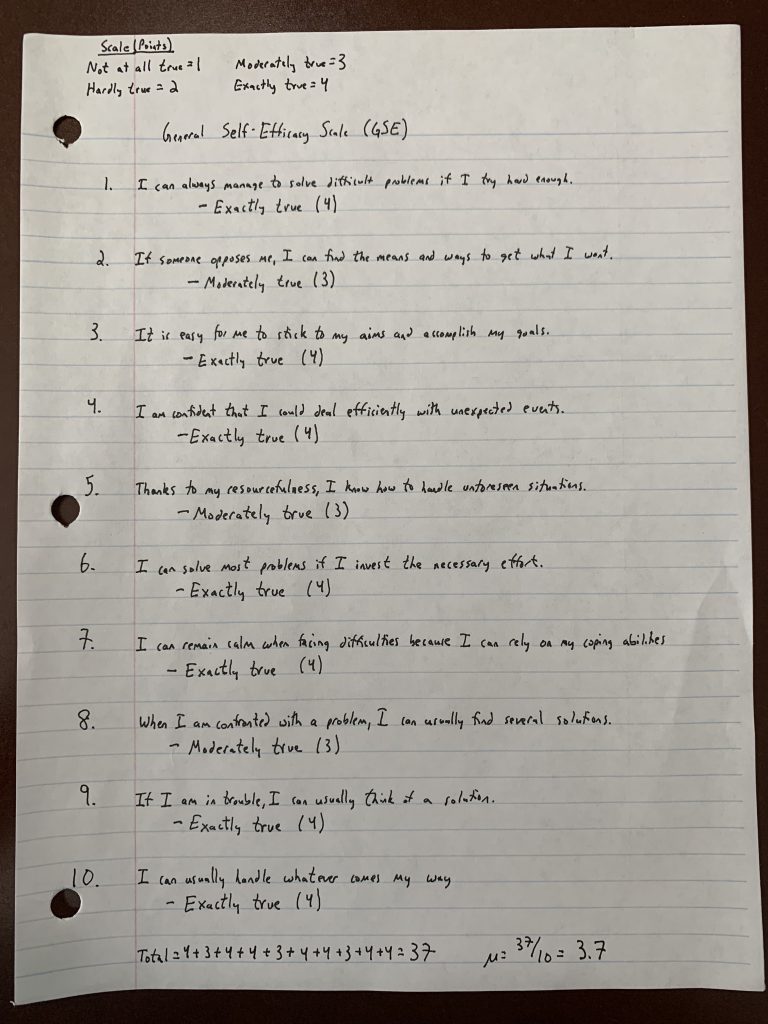 Scale (Points)
Not at all true = 1 Moderately true = 3
Hardly true = 2 Exactly true = 4
General Self-Efficacy Scale (GSE)
1. I can always manage to solve difficult problems if I try hard enough.
- Exactly true (4)
2. If someone opposes me, I can find the means and ways to get what I want.
- Moderately true (3)
3. It is easy for me to stick to my aims and accomplish my goals.
- Exactly true (4)
4. I am confident that I could deal efficiently with unexpected events.
- Exactly true (4)
5. Thanks to my resourcefulness, I know how to handle unforeseen situations.
- Moderately true (3)
6. I can solve most problems if I invest the necessary effort.
- Exactly true (4)
7. I can remain calm when facing difficulties because I can rely on my coping abilities
- Exactly true (4)
8. When I am confronted with a problem, I can usually find several solutions.
- Moderately true (3)
9. If I am in trouble, I can usually think of a solution.
- Exactly true (4)
10. I can usually handle whatever comes my way
- Exactly true (4)
Total = 4+3+4+4+3+4+4+3+4+4 = 37 μ = 37/10 = 3.7